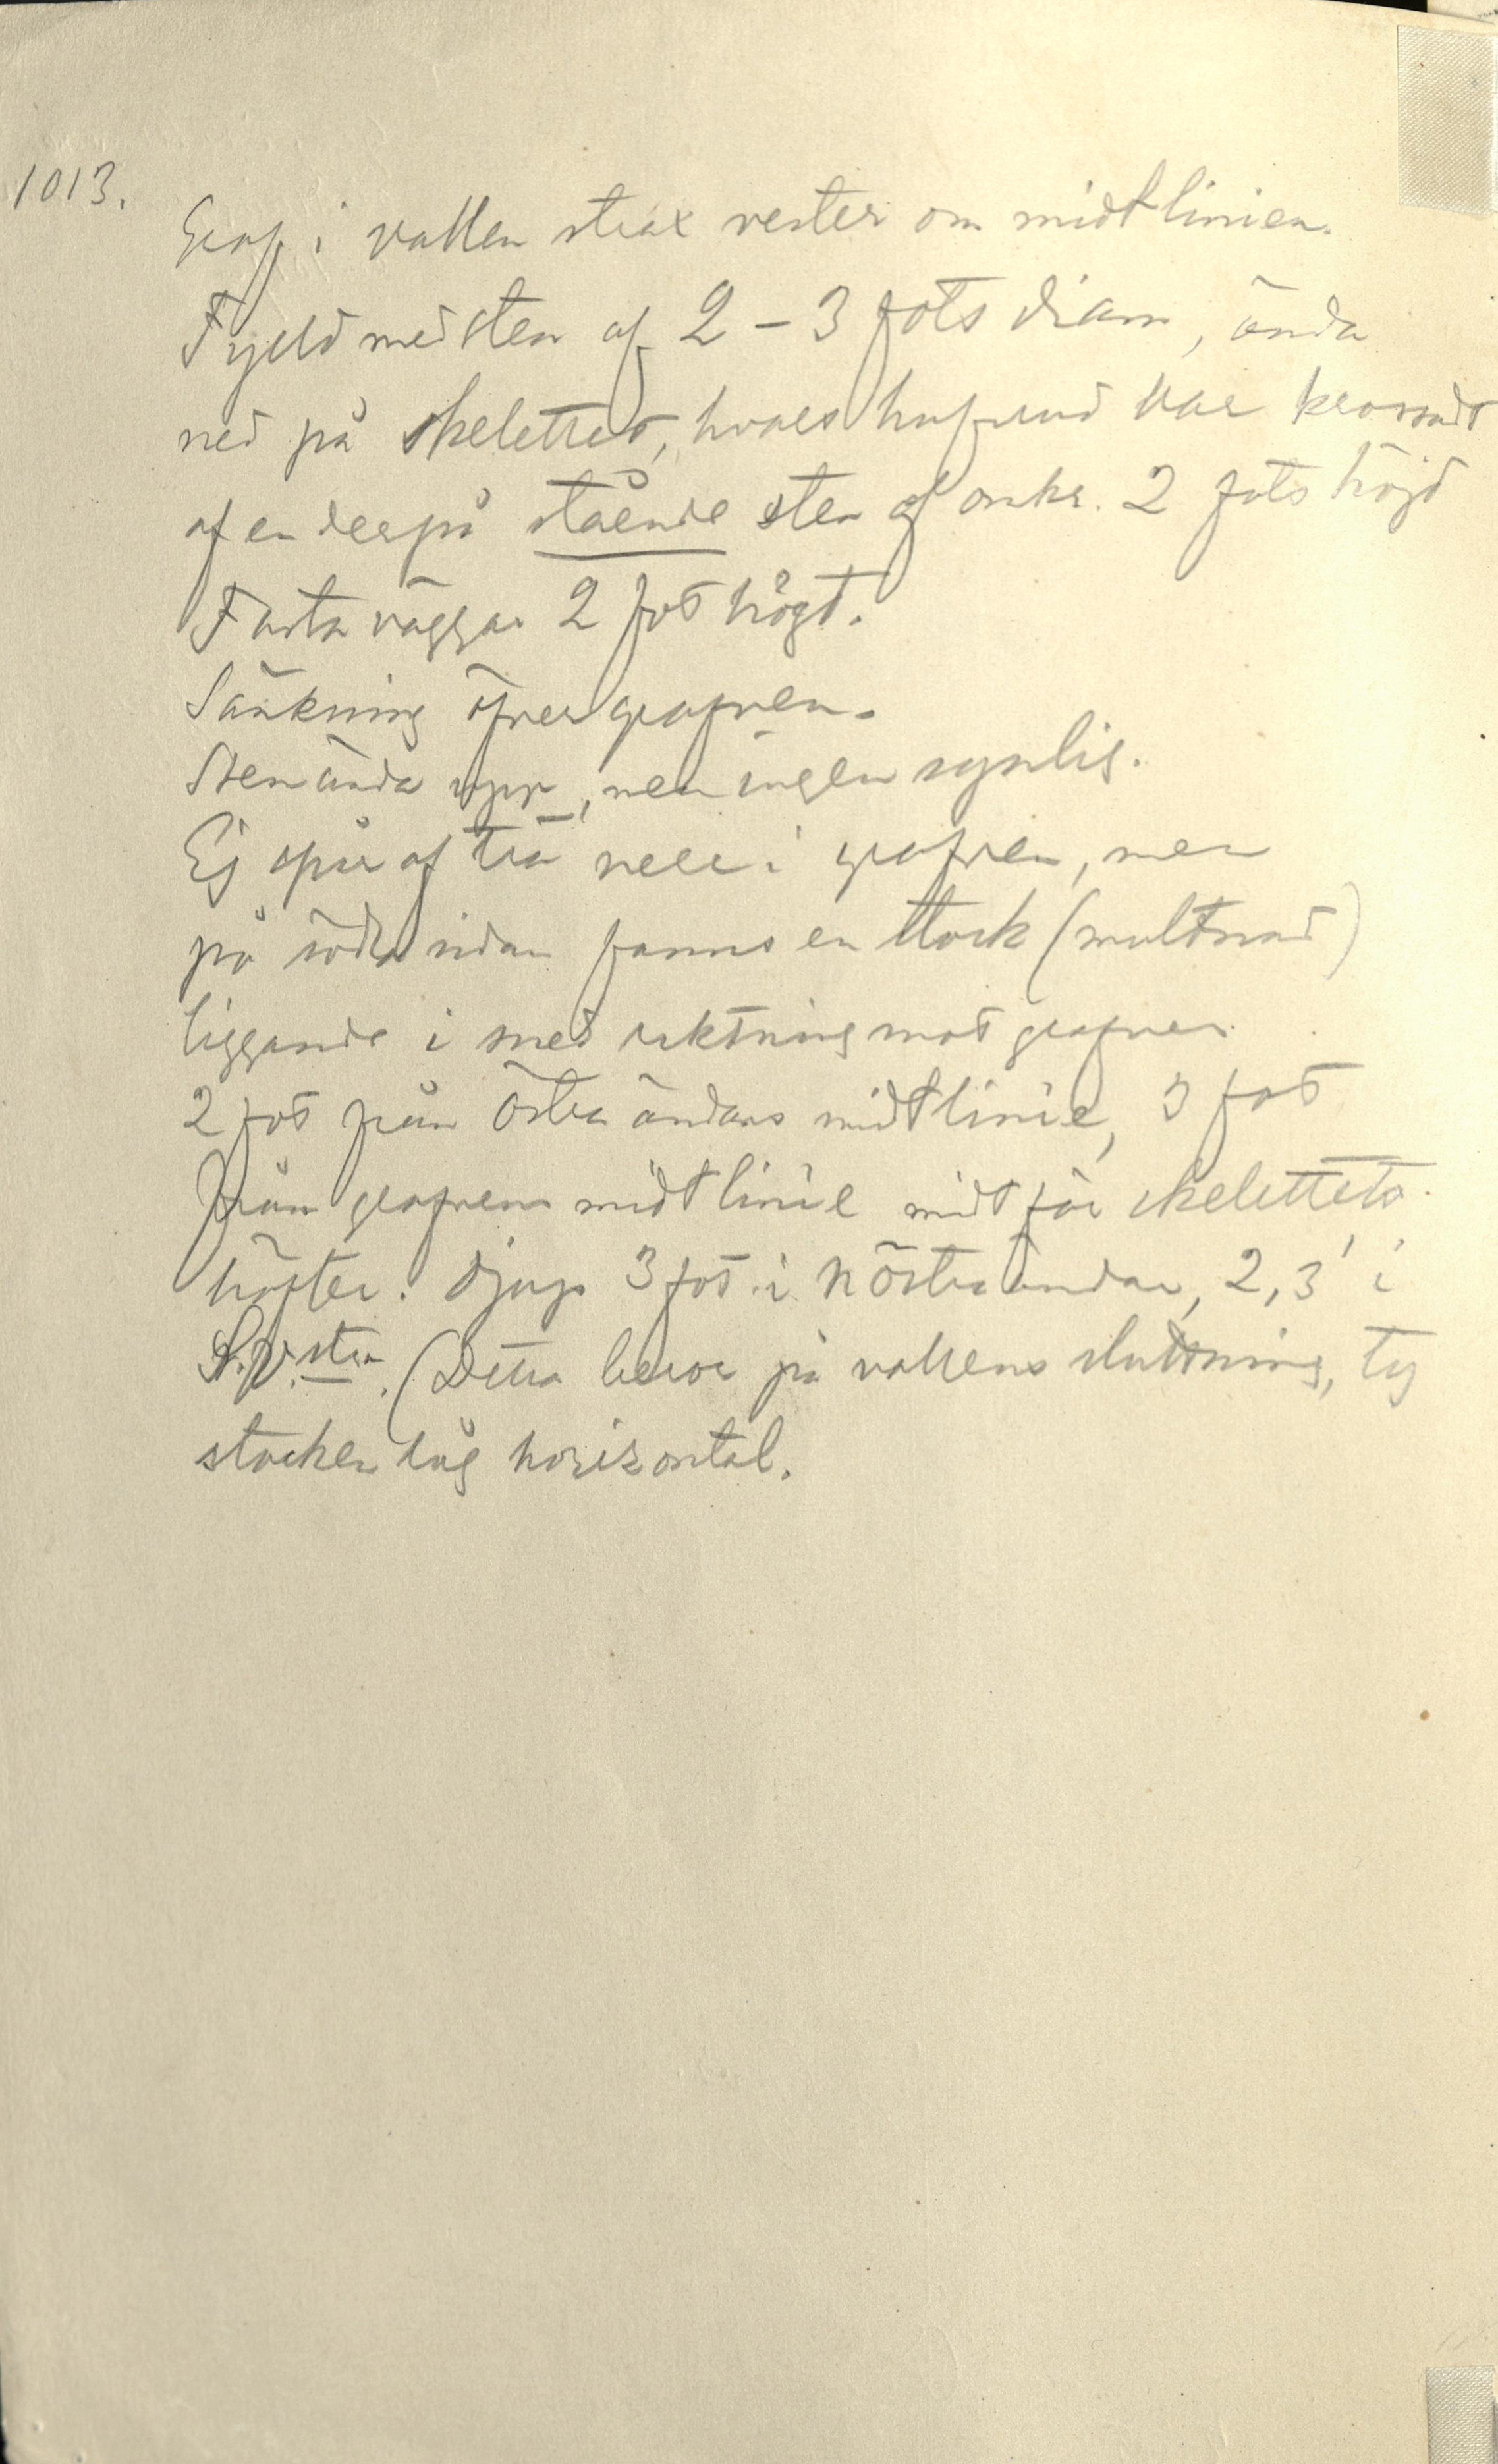 1013.
Graf i vallen strax vester om midtlinien.
Fyld med sten af 2 – 3 fots diam, ända
ned på skelettet, hvars hufvud var krossadt
af en derpå stående sten af omkr. 2 fots höjd
Fasta väggar 2 fot högt.
Sänkning öfver grafven.
Sten ända upp, men ingen synlig.
Ej spår af trä nere i grafven, men
på södra sidan fanns en stock (multnad)
liggande i sned riktning mot grafven.
2 fot från östra ändans midtlinie, 3 fot
från grafvens midtlinie midt för skelettets
höfter. Djup 3 fot i N östra ändan, 2,3' i
S.V.stra. (Detta beror på vallens sluttning, ty
stocken låg horizontal.